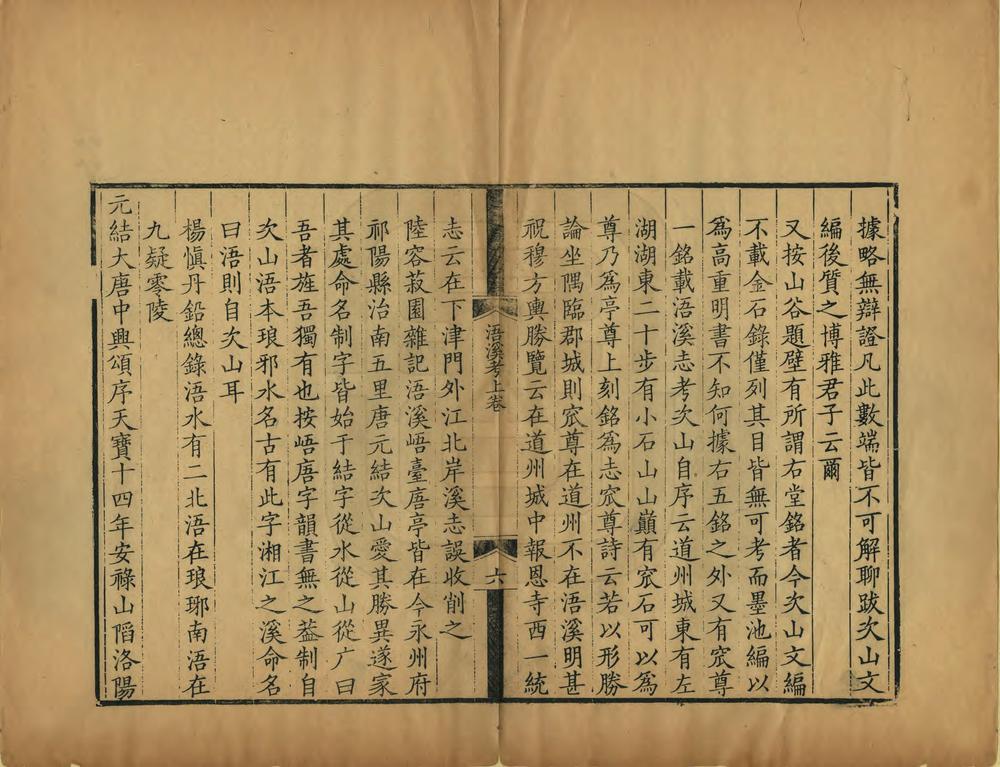 據略無辯證凡此數端皆不可解聊跋次山文
編後質之博雅君子云爾
又按山谷題壁有所謂右堂銘者今次山文編
不載金石錄僅列其目皆無可考而墨池編以
爲高重明書不知何據右五銘之外又有窊尊
一銘載浯溪志考次山自序云道州城東有左
湖湖東二十步有小石山山巔有窊石可以爲
尊乃爲亭尊上刻銘爲志窊尊詩云若以形勝
論坐隅臨郡城則窊尊在道州不在浯溪明甚
祝穆方輿勝覽云在道州城中報恩寺西一統
浯溪考上卷
六
志云在下津門外江北岸溪志誤收削之
陸容菽園雜記浯溪峿臺㾗亭皆在今永州府
祁陽縣治南五里唐元結次山愛其勝異遂家
其處命名制字皆始于結字從水從山從广曰
吾者旌吾獨有也按峿㾗字韻書無之葢制自
次山浯本琅邪水名古有此字湘江之溪命名
曰浯則自次山耳
楊愼丹鉛總錄浯水有二北浯在琅琊南浯在
九疑零陵
元結大唐中興頌序天寶十四年安祿山陷洛陽